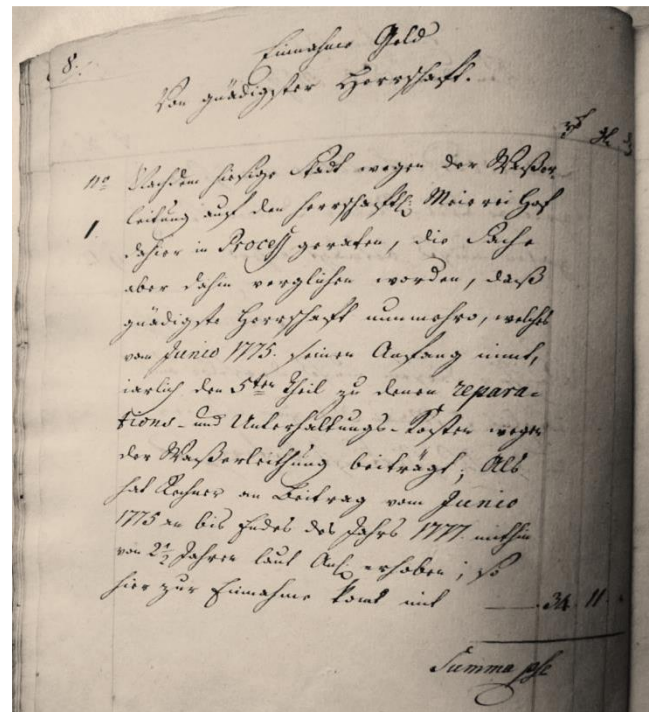 8.
Einnahme Geld
Von gnädigster Herrschafft.
No Nachdem hiesige Stadt wegen der Waßer-
1. leitung auf den herrschafftl. Meierei Hof
dahier in Process geraten, die Sache
aber dahin verglichen worden, daß
gnädigste Herrschafft nunmehro, welches
vom Junio 1775. seinen Anfang nimt,
iärlich den 5ten Theil zu denen repara-
tions- und Unterhaltungs-Kosten wegen
der Waßerleithung beiträgt; Als
hat Rechner an Beitrag vom Junio
1775 an bis Endes des Jahrs 1777. mithin
von 2 1/2 Jahren laut Anl. erhoben; so
hier zur Einnahme komt mit — 34. 11.
Summa pse